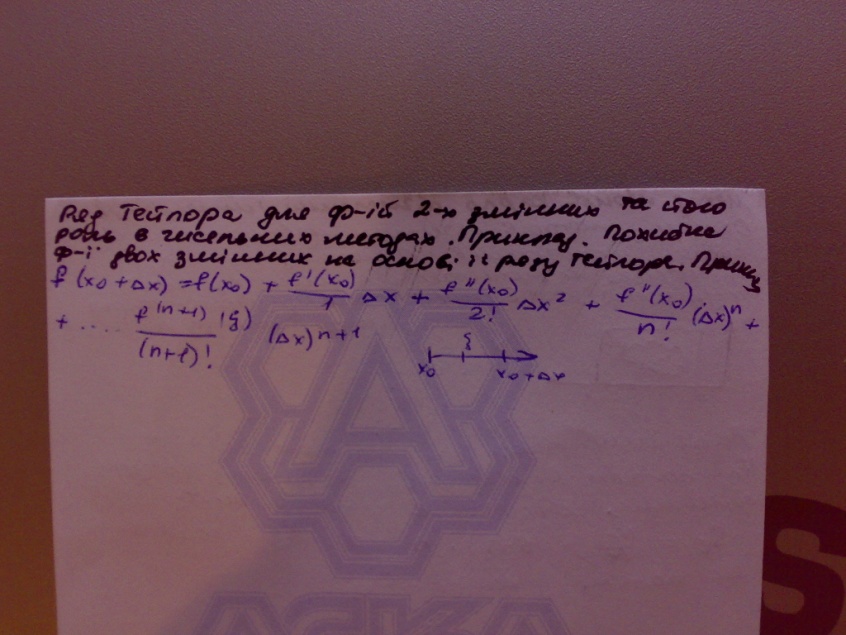 Ряд Тейлора для ф-ій 2-х змінних та його
роль в чисельних методах. Приклад. Похибка
ф-ї двох змінних на основі її ряду Тейлора. Приклад
f (x₀ + Δx) = f(x₀) + f'(x₀)/1 Δx + f''(x₀)/2! Δx² + f''(x₀)/n! (Δx)ⁿ +
+ .... f⁽ⁿ⁺¹⁾(ξ)/(n+1)! (Δx)ⁿ⁺¹
ξ
x₀ x₀+Δx
АСКА
S